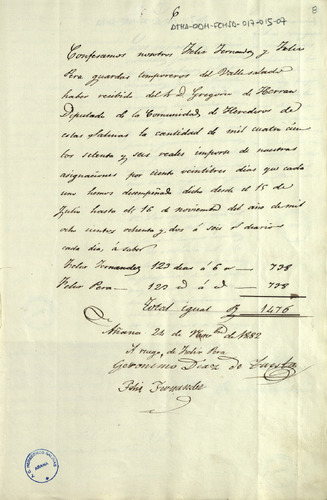 6
8
ATHA-DAH-FCHSA-017-015-07
Confesamos nosotros Felix Fernandez y Felix
Pera guardas temporeros del Valle salado
haber recibido del Sr. D. Gregorio de Herran
Deputado de la Comunidad de Herederos de
estas Salinas la cantidad de mil cuatro cien
tos setenta y seis reales importe de nuestras
asignaciones por ciento veintitres dias que cada
uno hemos desempeñado dicho desde el 15 de
Julio hasta el 16 de noviembre del año de mil
ocho cientos ochenta y dos á seis rs. diarios
cada dia, á saber
Felix Fernandez 123 dias á 6 rs — 738
Felix Pera — 123 id á id — 738
Total igual R 1476
Añana 24 de Novbre de 1882
A ruego, de Felix Pera
Geronimo Diaz de Tuesta
Felix Fernandez
AÑANA